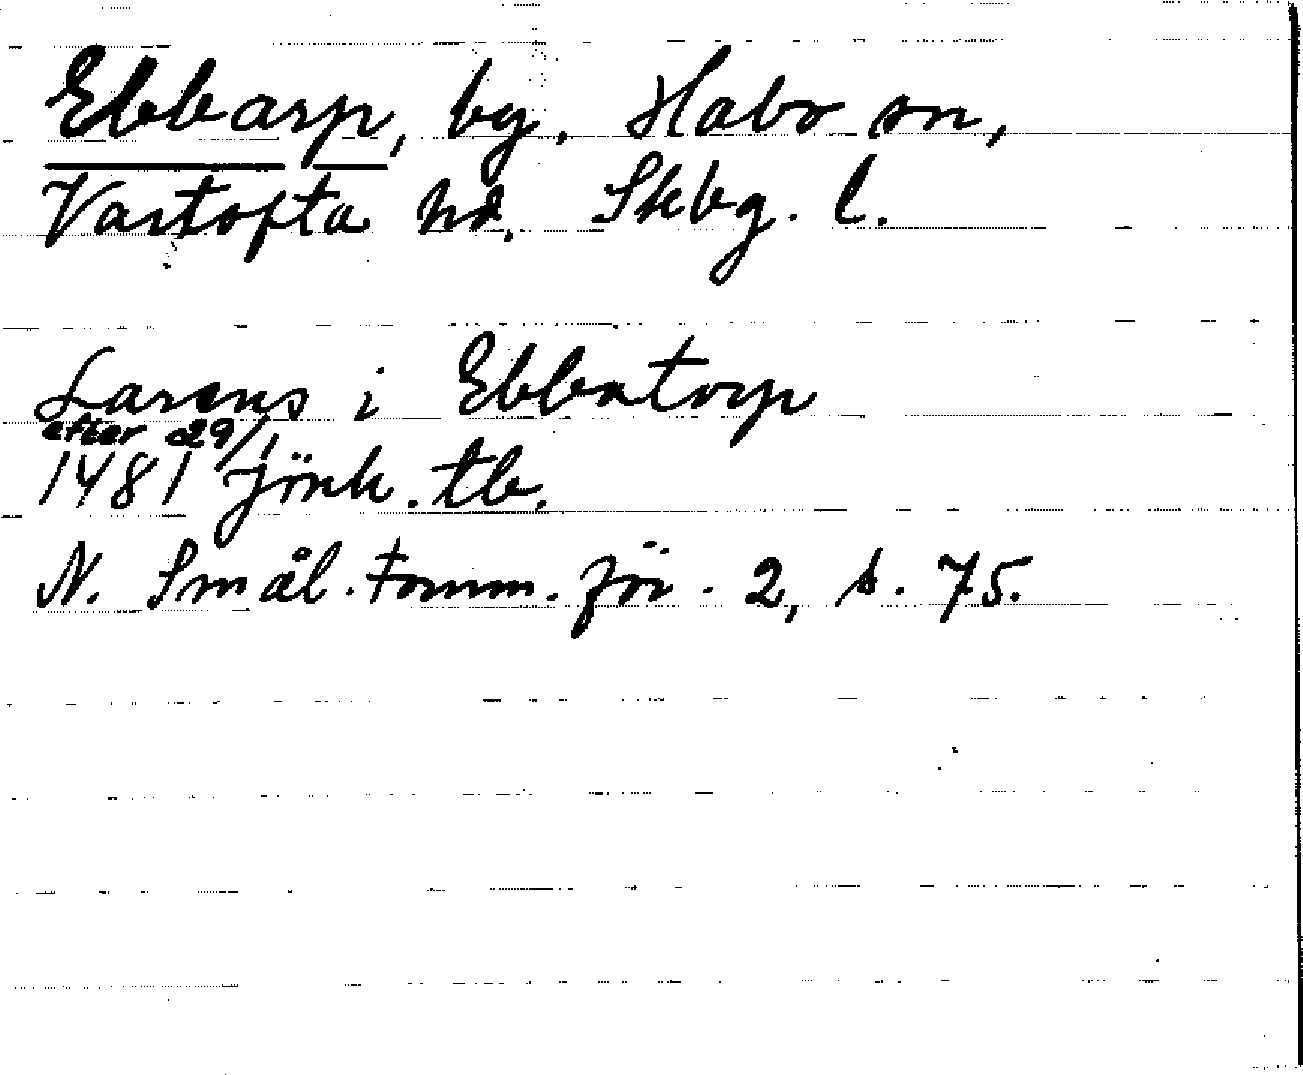 Ebbarp, by, Habo sn,
Vartofta hd. Skbg. l.
Larens i Ebbatorp
efter 29/1
1481 Jönk. tb.
N. Smål. Fornm. för. 2, s. 75.